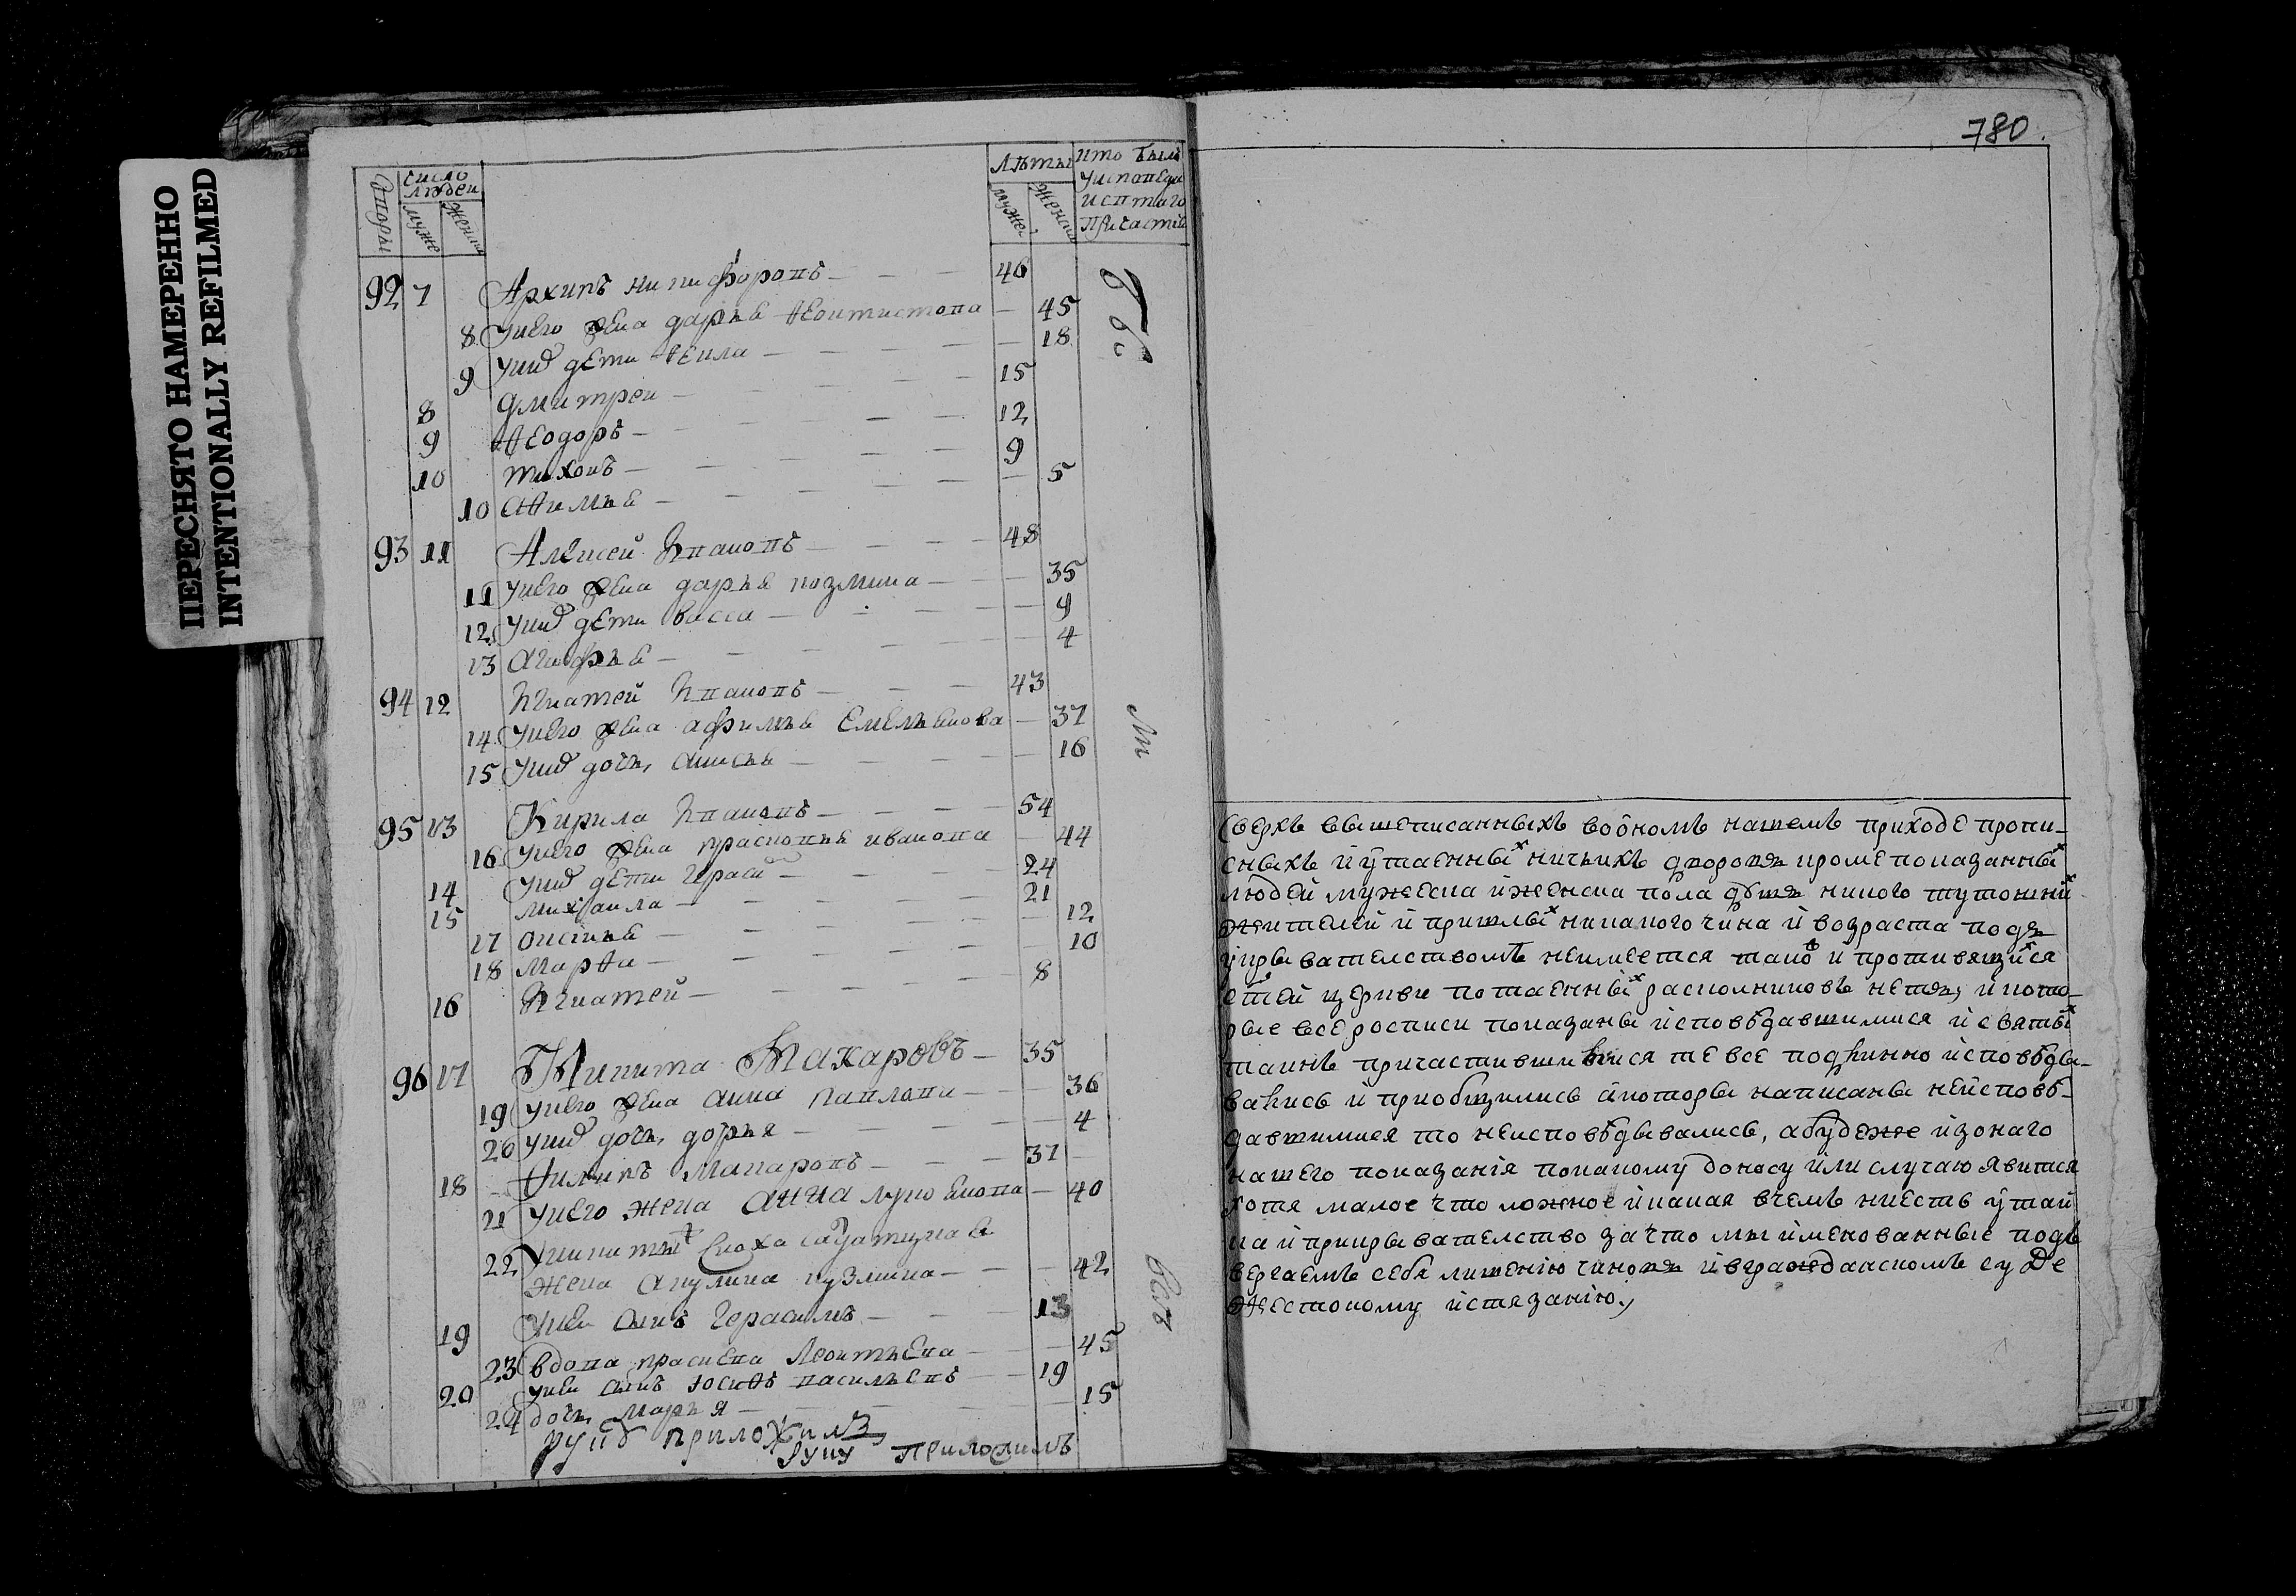 ПЕРЕСНЯТО НАМЕРЕННО
INTENTIONALLY REFILMED
780.
Дворы
Число людей
муже
женска
Лѣты
муже.
женска
кто былъ
у исповеди
и свтаго
причастия
92 7 Архипъ никифоровъ 46
8 у него жена дарья Ѳеоктистова 45
9 у них дети Ѳекла 18
8 дмитреи 15
9 Ѳеодоръ 12
10 тихонъ 9
10 аѲимья 5
93 11 Алексей Iвановъ 48
11 у него жена дарья козмина 35
12 у них дети васса 9
13 агафья 4
94 12 Iгнатей Iвановъ 43
14 у него жена афимья Емельянова 37
15 у них дочь
16
95 13 Кирила Iвановъ 54
16 у него жена прасковья иванова 44
14 у них дети гераси 24
15 михаила 21
17 12
18 марѲа 10
16 Iгнатей 8
96 17 Никита Макаровъ 35
19 у него жена анна 36
20 у них дочь дарья 4
18 Ѳилипъ Макаровъ 37
21 у него жена анна лукоянова 40
22 у никиты сноха
жена акулина кузмина 42
19 у неи сынъ герасимъ 13
23 вдова Леонтьева 45
20 у неи сынъ васильевъ 19
24 дочь марья 15
руку приложилъ
руку приложилъ
Сверхъ вышеписанныхъ во ономъ нашемъ приходе пропи-
сныхъ и утаенных ничьихъ дворовъ кроме показанных
людей мужеска и женска пола детей никого тутошних
жителей и пришлых никакого чина и возраста подъ
укрывателствомъ неимеется тако и противящихся
стей церкви потаенных раскольниковъ нетъ, и кото-
рые в сей росписи показаны исповѣдавшимися и святых
таинъ причастившимися те все подлинно исповѣды-
вались и приобщились а которы написаны неисповѣ-
давшимися то неисповѣдывались, а буде же из онаго
нашего показанія по какому доносу или случаю явится
хотя малое что ложное и какая в чемъ ни есть утай
ка и прикрывателство за что мы имянованные подъ
вергаемъ себя лишенію чиновъ и в гражданскомъ суде
жестокому истязанію,